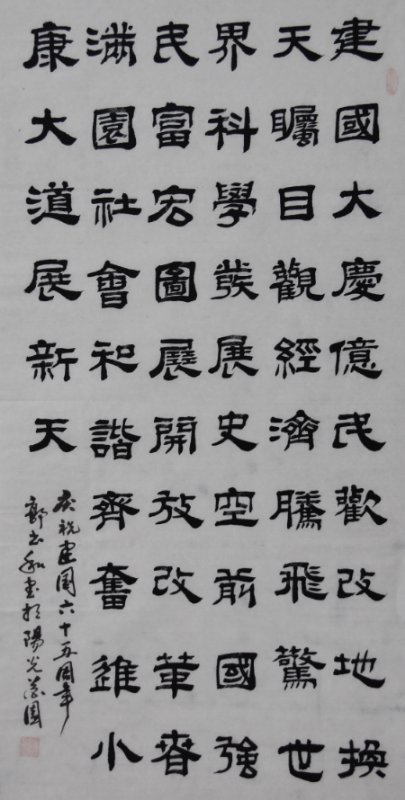 建國大慶億民歡改地換
天矚目觀經濟騰飛驚世
界科學發展史空前國強
民富宏圖展開放改革春
滿園社會和諧齊奮進小
康大道展新天
庆祝建国六十五周年
郭 书於陽光花園